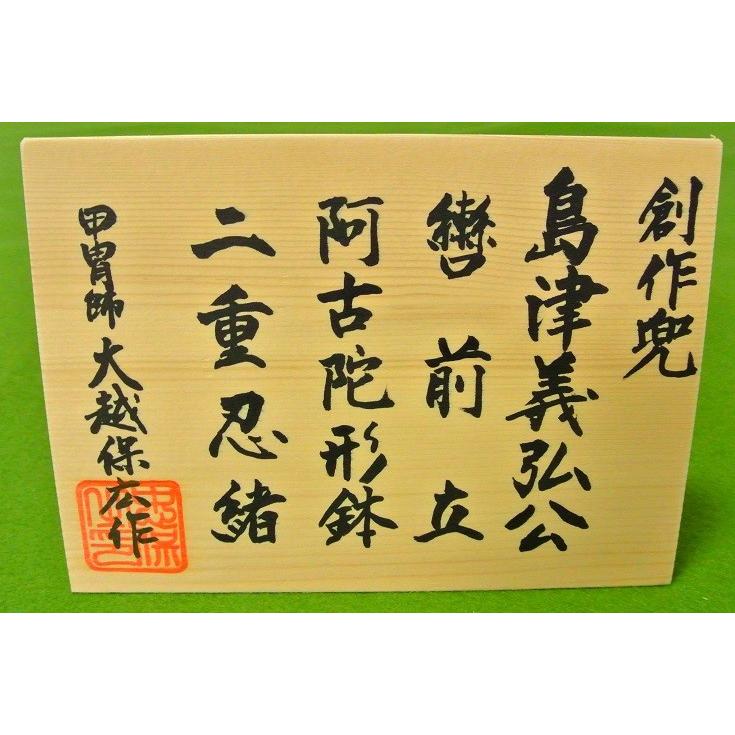 創作兜
島津義弘公
轡前立
阿古陀形鉢
二重忍緒
甲冑師大越保広作